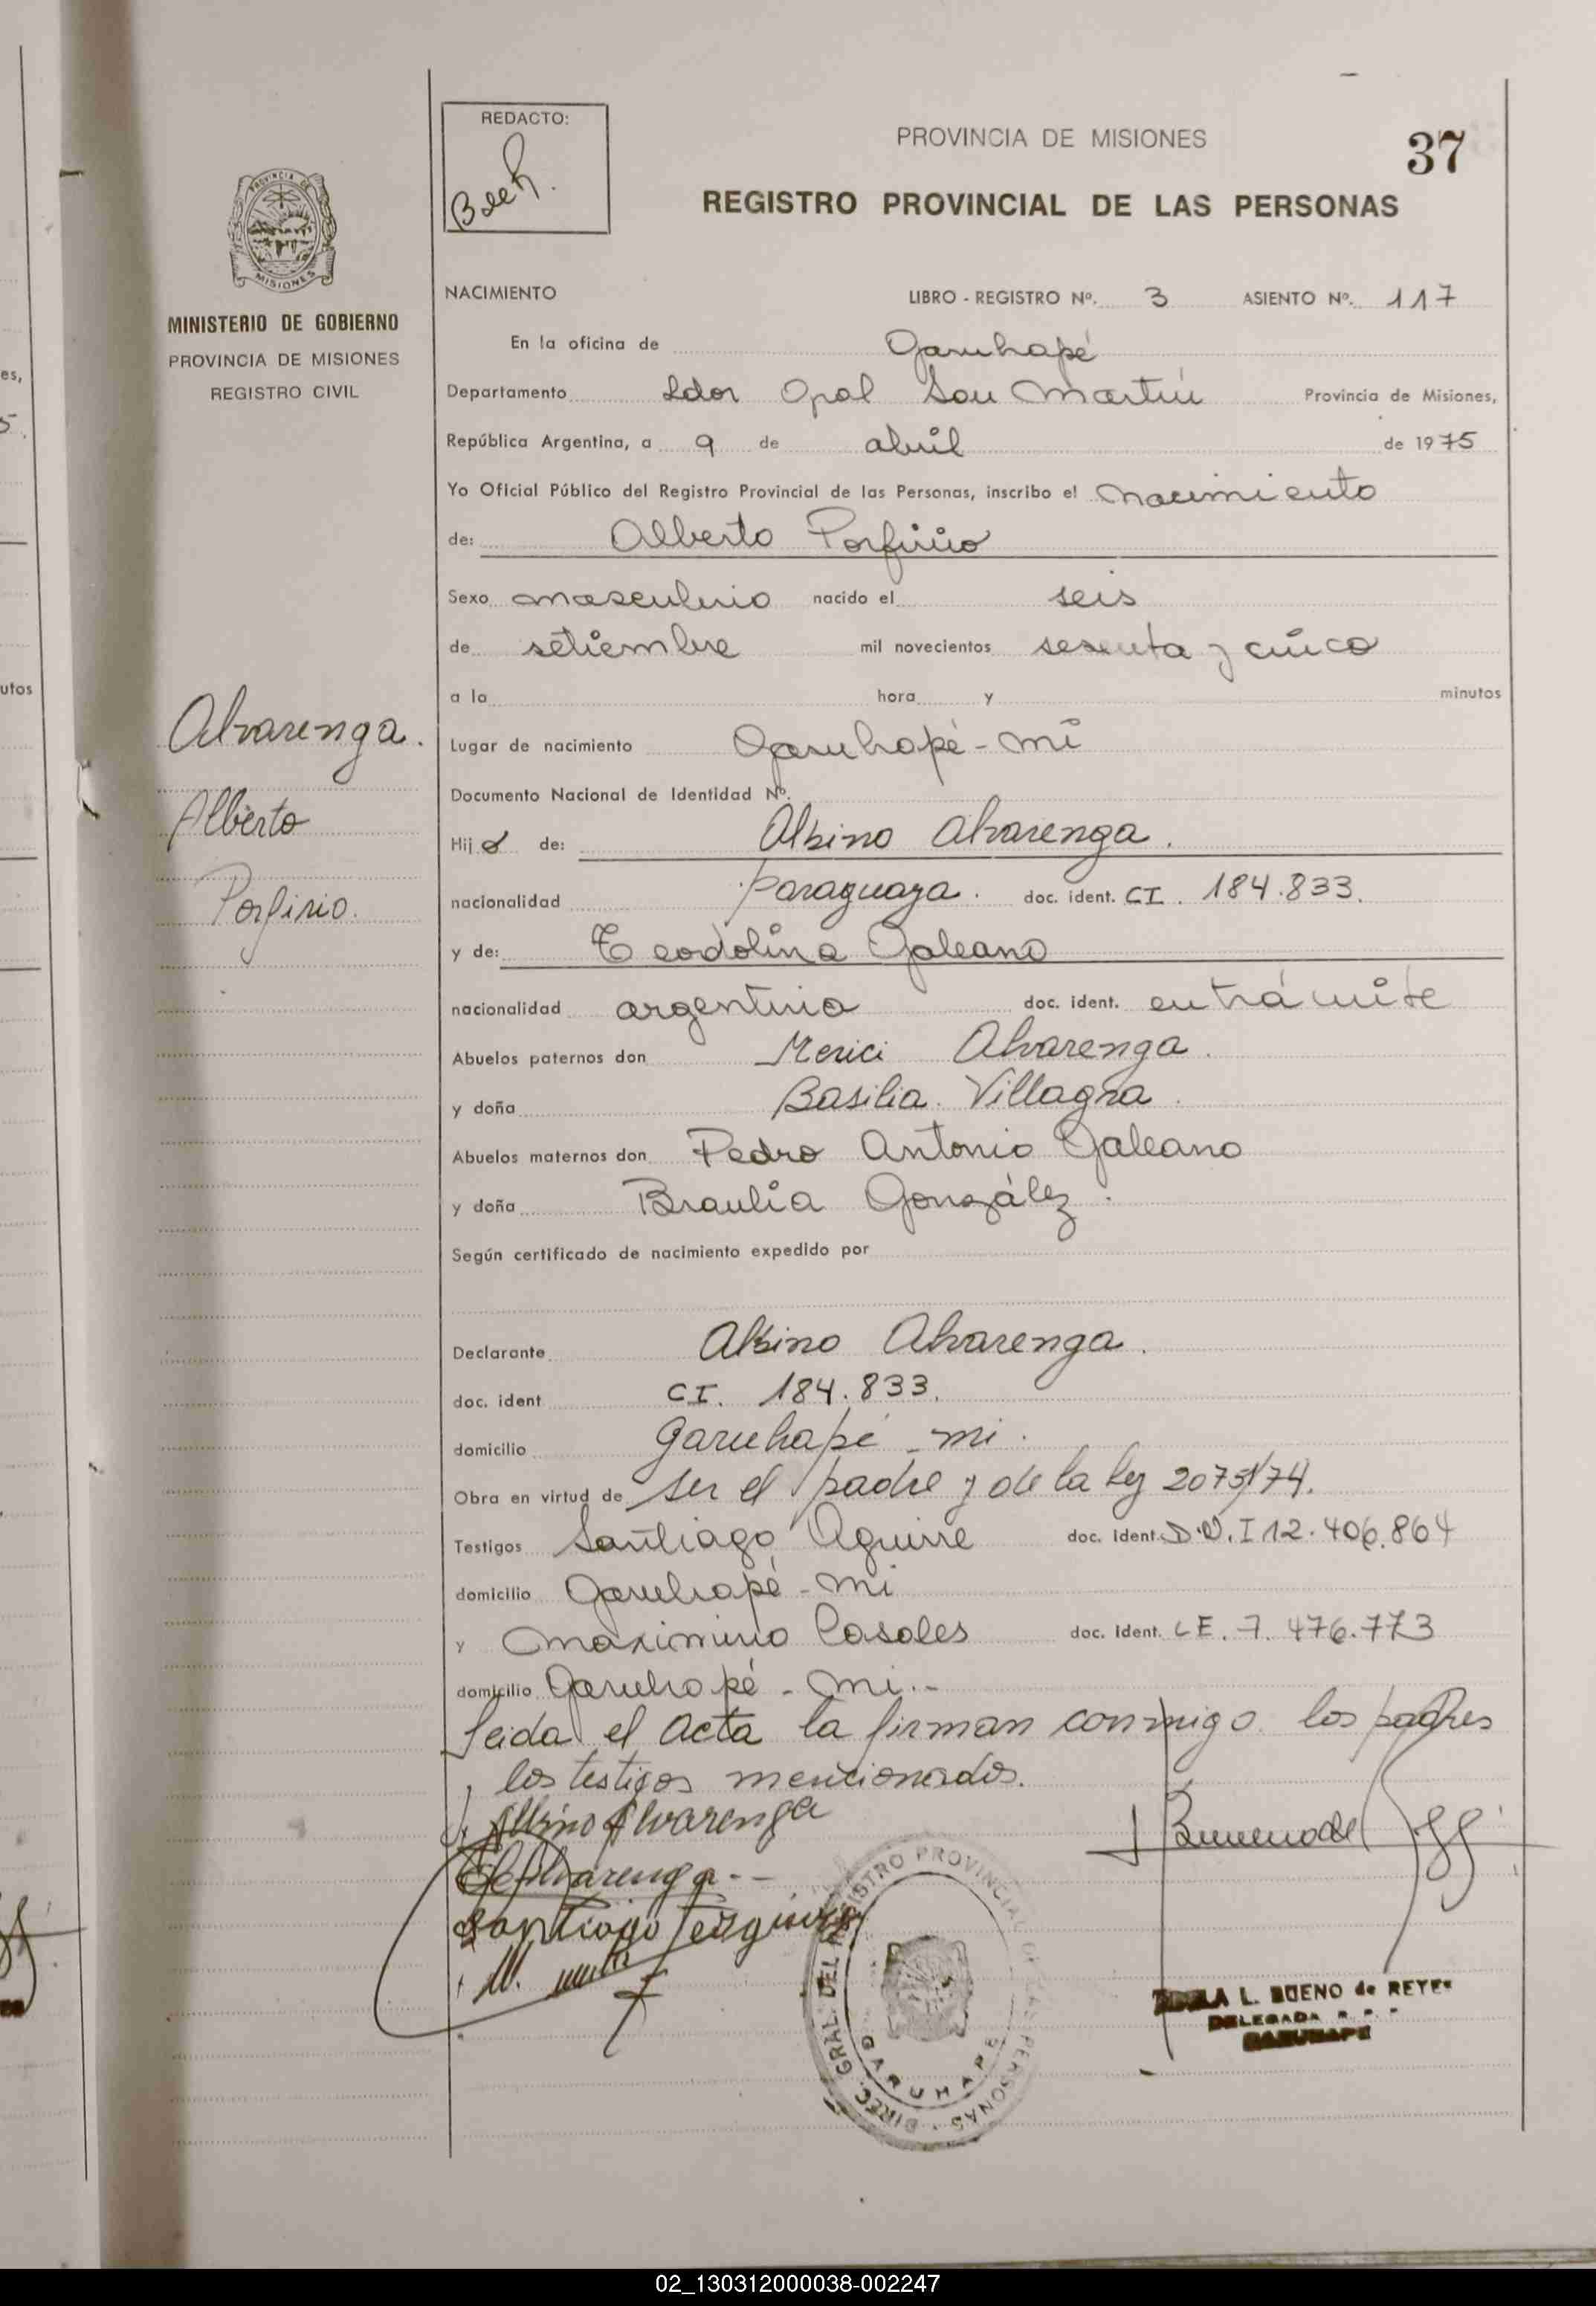 REDACTO:
PROVINCIA DE MISIONES
37
REGISTRO PROVINCIAL DE LAS PERSONAS
PROVINCIA DE
MISIONES
MINISTERIO DE GOBIERNO
PROVINCIA DE MISIONES
REGISTRO CIVIL
Alvarenga.
Alberto
Porfirio.
NACIMIENTO LIBRO - REGISTRO Nº. 3 ASIENTO Nº. 117
En la oficina de Garuhapé
Departamento Ldor Gral San Martín Provincia de Misiones,
República Argentina, a 9 de abril de 1975
Yo Oficial Público del Registro Provincial de las Personas, inscribo el nacimiento
de: Alberto Porfirio
Sexo masculino nacido el seis
de setiembre mil novecientos sesenta y cinco
a la hora y minutos
Lugar de nacimiento Garuhapé - mi
Documento Nacional de Identidad Nº.
Hijo de: Albino Alvarenga.
nacionalidad paraguaya. doc. ident. CI. 184.833.
y de: Teodolina Galeano
nacionalidad argentina doc. ident. en trámite
Abuelos paternos don Alvarenga.
y doña Basilia Villagra.
Abuelos maternos don Pedro Antonio Galeano
y doña Braulia González.
Según certificado de nacimiento expedido por
Declarante Albino Alvarenga.
doc. ident CI. 184.833.
domicilio Garuhapé - mi.
Obra en virtud de ser el padre y de la ley
Testigos Santiago Aguirre doc. ident. D.N.I 12.406.864
domicilio Garuhapé - mi
y Maximino Casales doc. ident. LE. 7.476.773
domicilio Garuhapé - mi.-
Leida el acta la firman conmigo los padres
y los testigos mencionados.
Albino Alvarenga
Alvarenga--
Santiago
L. BUENO de REYES
DELEGADA R. P. P.
GARUHAPE
DIREC. GRAL. DEL REGISTRO PROVINCIAL DE LAS PERSONAS
GARUHAPE
es,
5.
utos
02_130312000038-002247